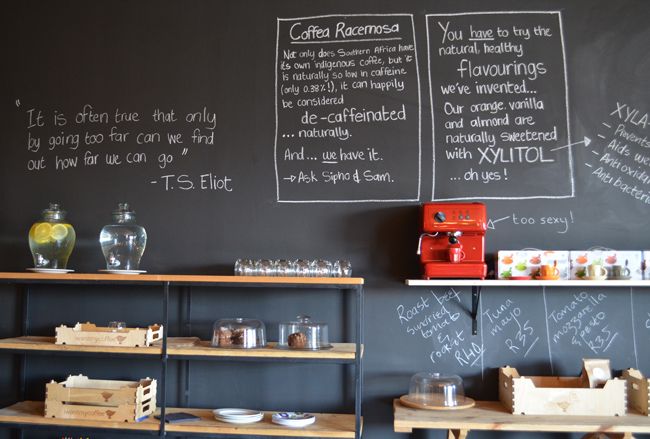 " It is often true that only
by going too far can we find
out how far we can go "
- T.S. Eliot
Coffea Racemosa
Not only does Southern Africa have
its own indigenous coffee, but it
is naturally so low in caffeine
(only 0.38%!), it can happily
be considered
de-caffeinated
... naturally.
And... we have it.
→ Ask Sipho & Sam.
You have to try the
natural, healthy
flavourings
we've invented...
Our orange, vanilla
and almond are
naturally sweetened
with XYLITOL
... oh yes!
- Prevents
- Aids we
- Anti oxidant
- Anti bacteri
too sexy!
Roast beef
sundried
tomato
&
rocket
R40
Tuna
mayo
R35
Tomato
mozzarella
& pesto
R35
iwantmycoffee
iwantmycoffee